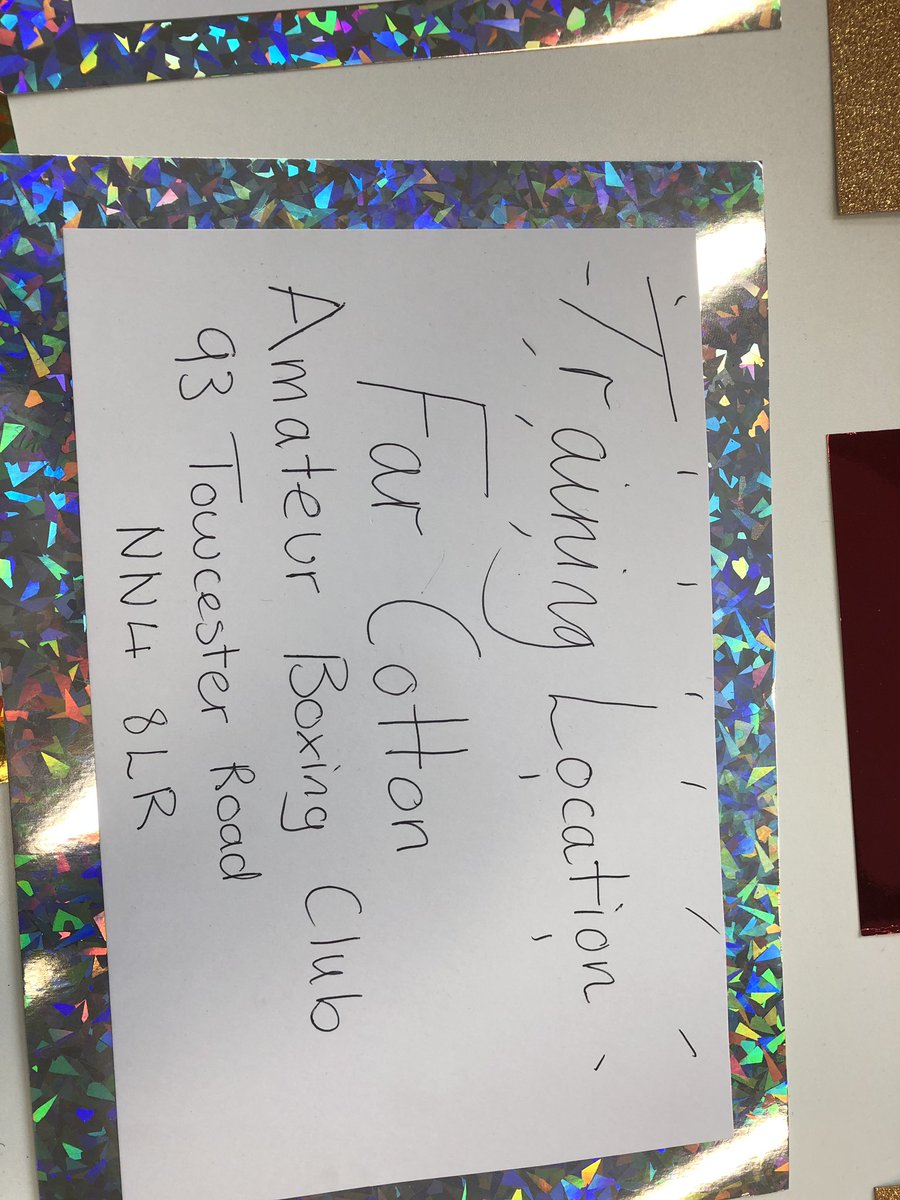 Training Location
Far Cotton
Amateur Boxing Club
93 Towcester Road
NN4 8LR